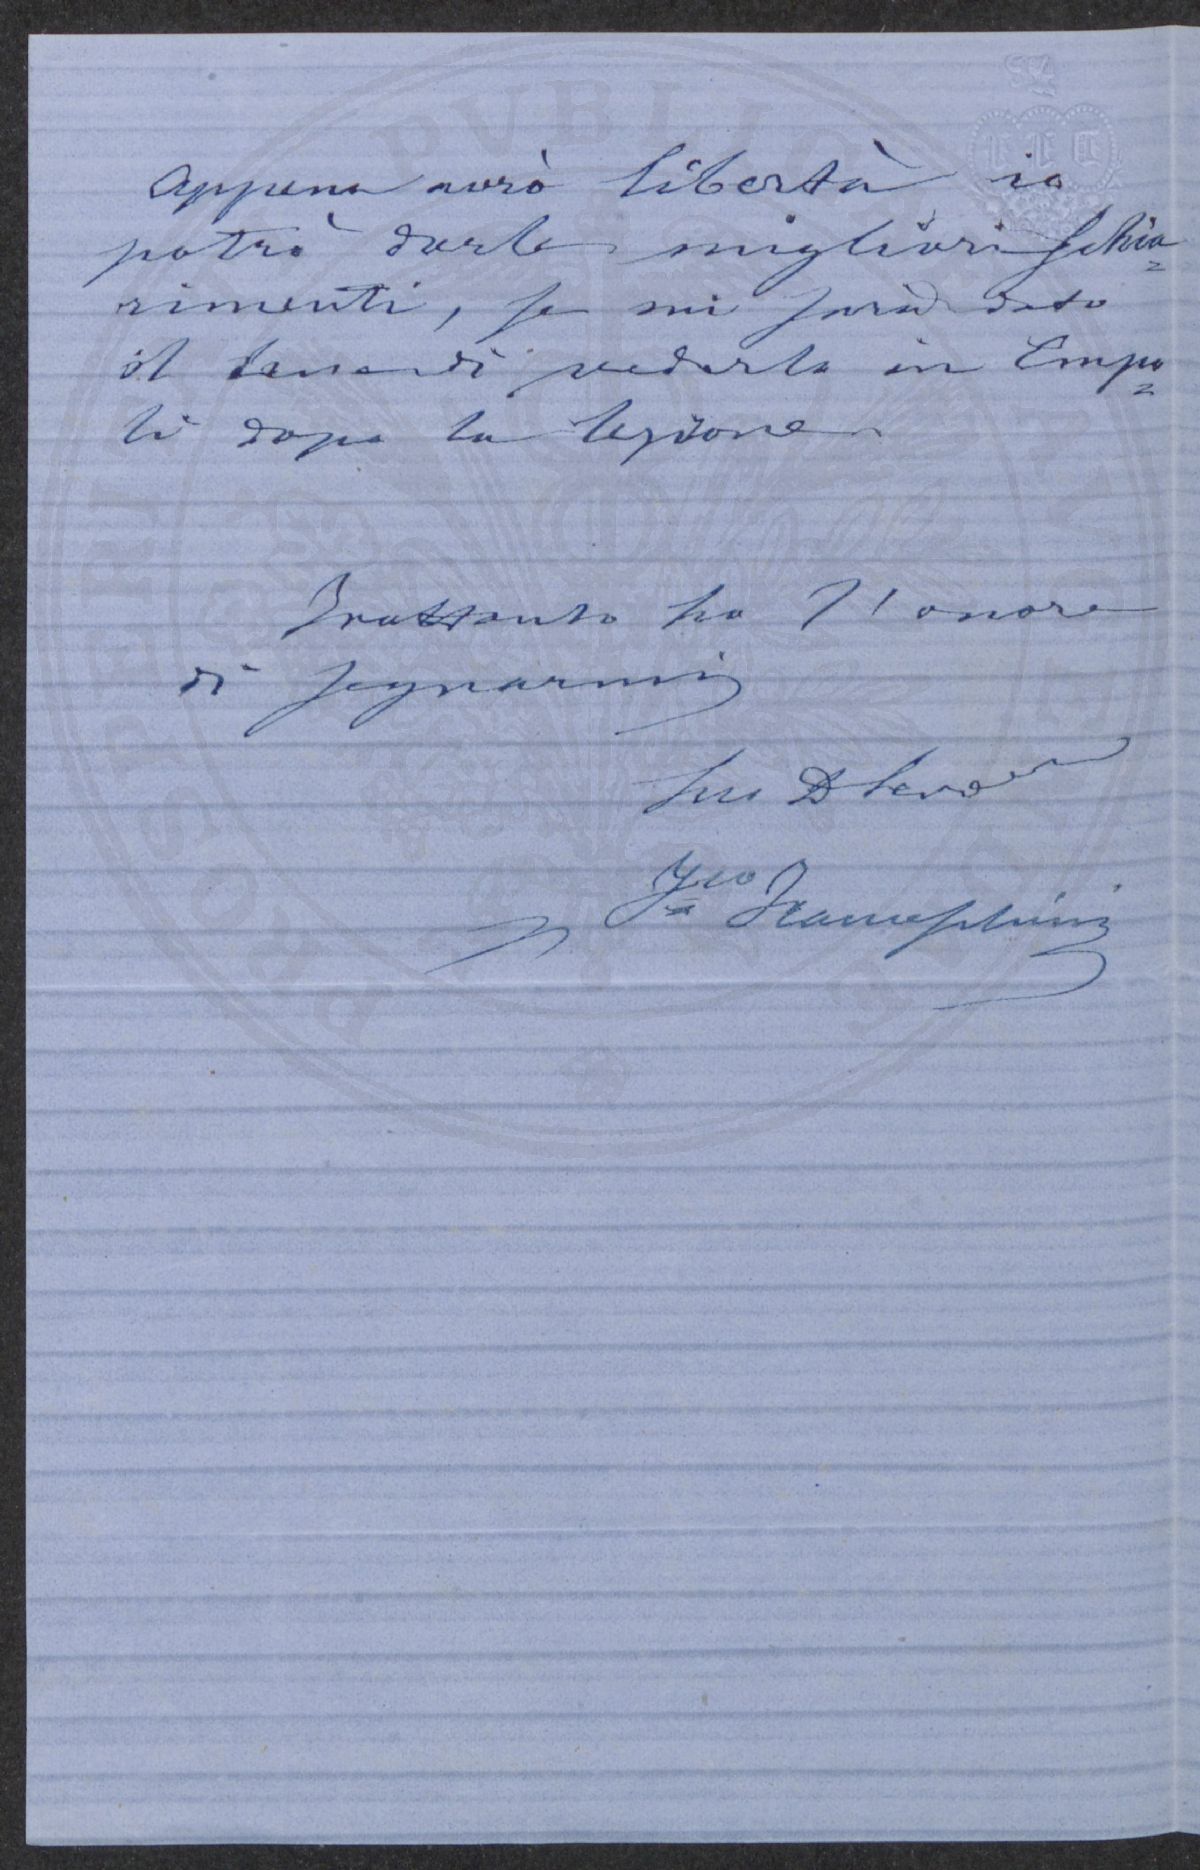 Appena avrò libertà io
potrò darle migliori schia=
rimenti, se mi sarà dato
il bene di vederla in Empo=
li dopo la lezione
Frattanto ho l'onore
di segnarmi
Suo D Servo